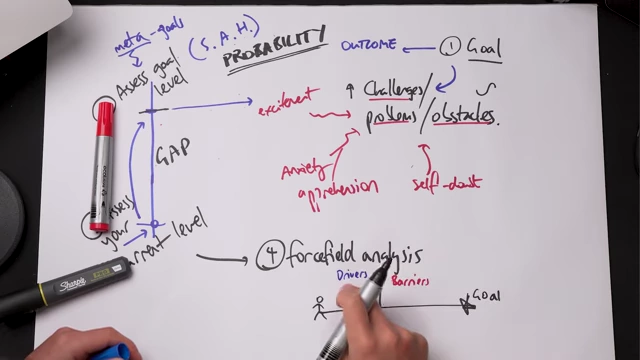 meta-goals
(S.A.H.)
PROBABILITY
OUTCOME
① Goal
Assess goal
level
↑ Challenges/
problems/obstacles
excitement
GAP
Anxiety
apprehension
self-doubt
Assess
your
current level
④ forcefield analysis
Drivers
Barriers
Goal
Sharpie